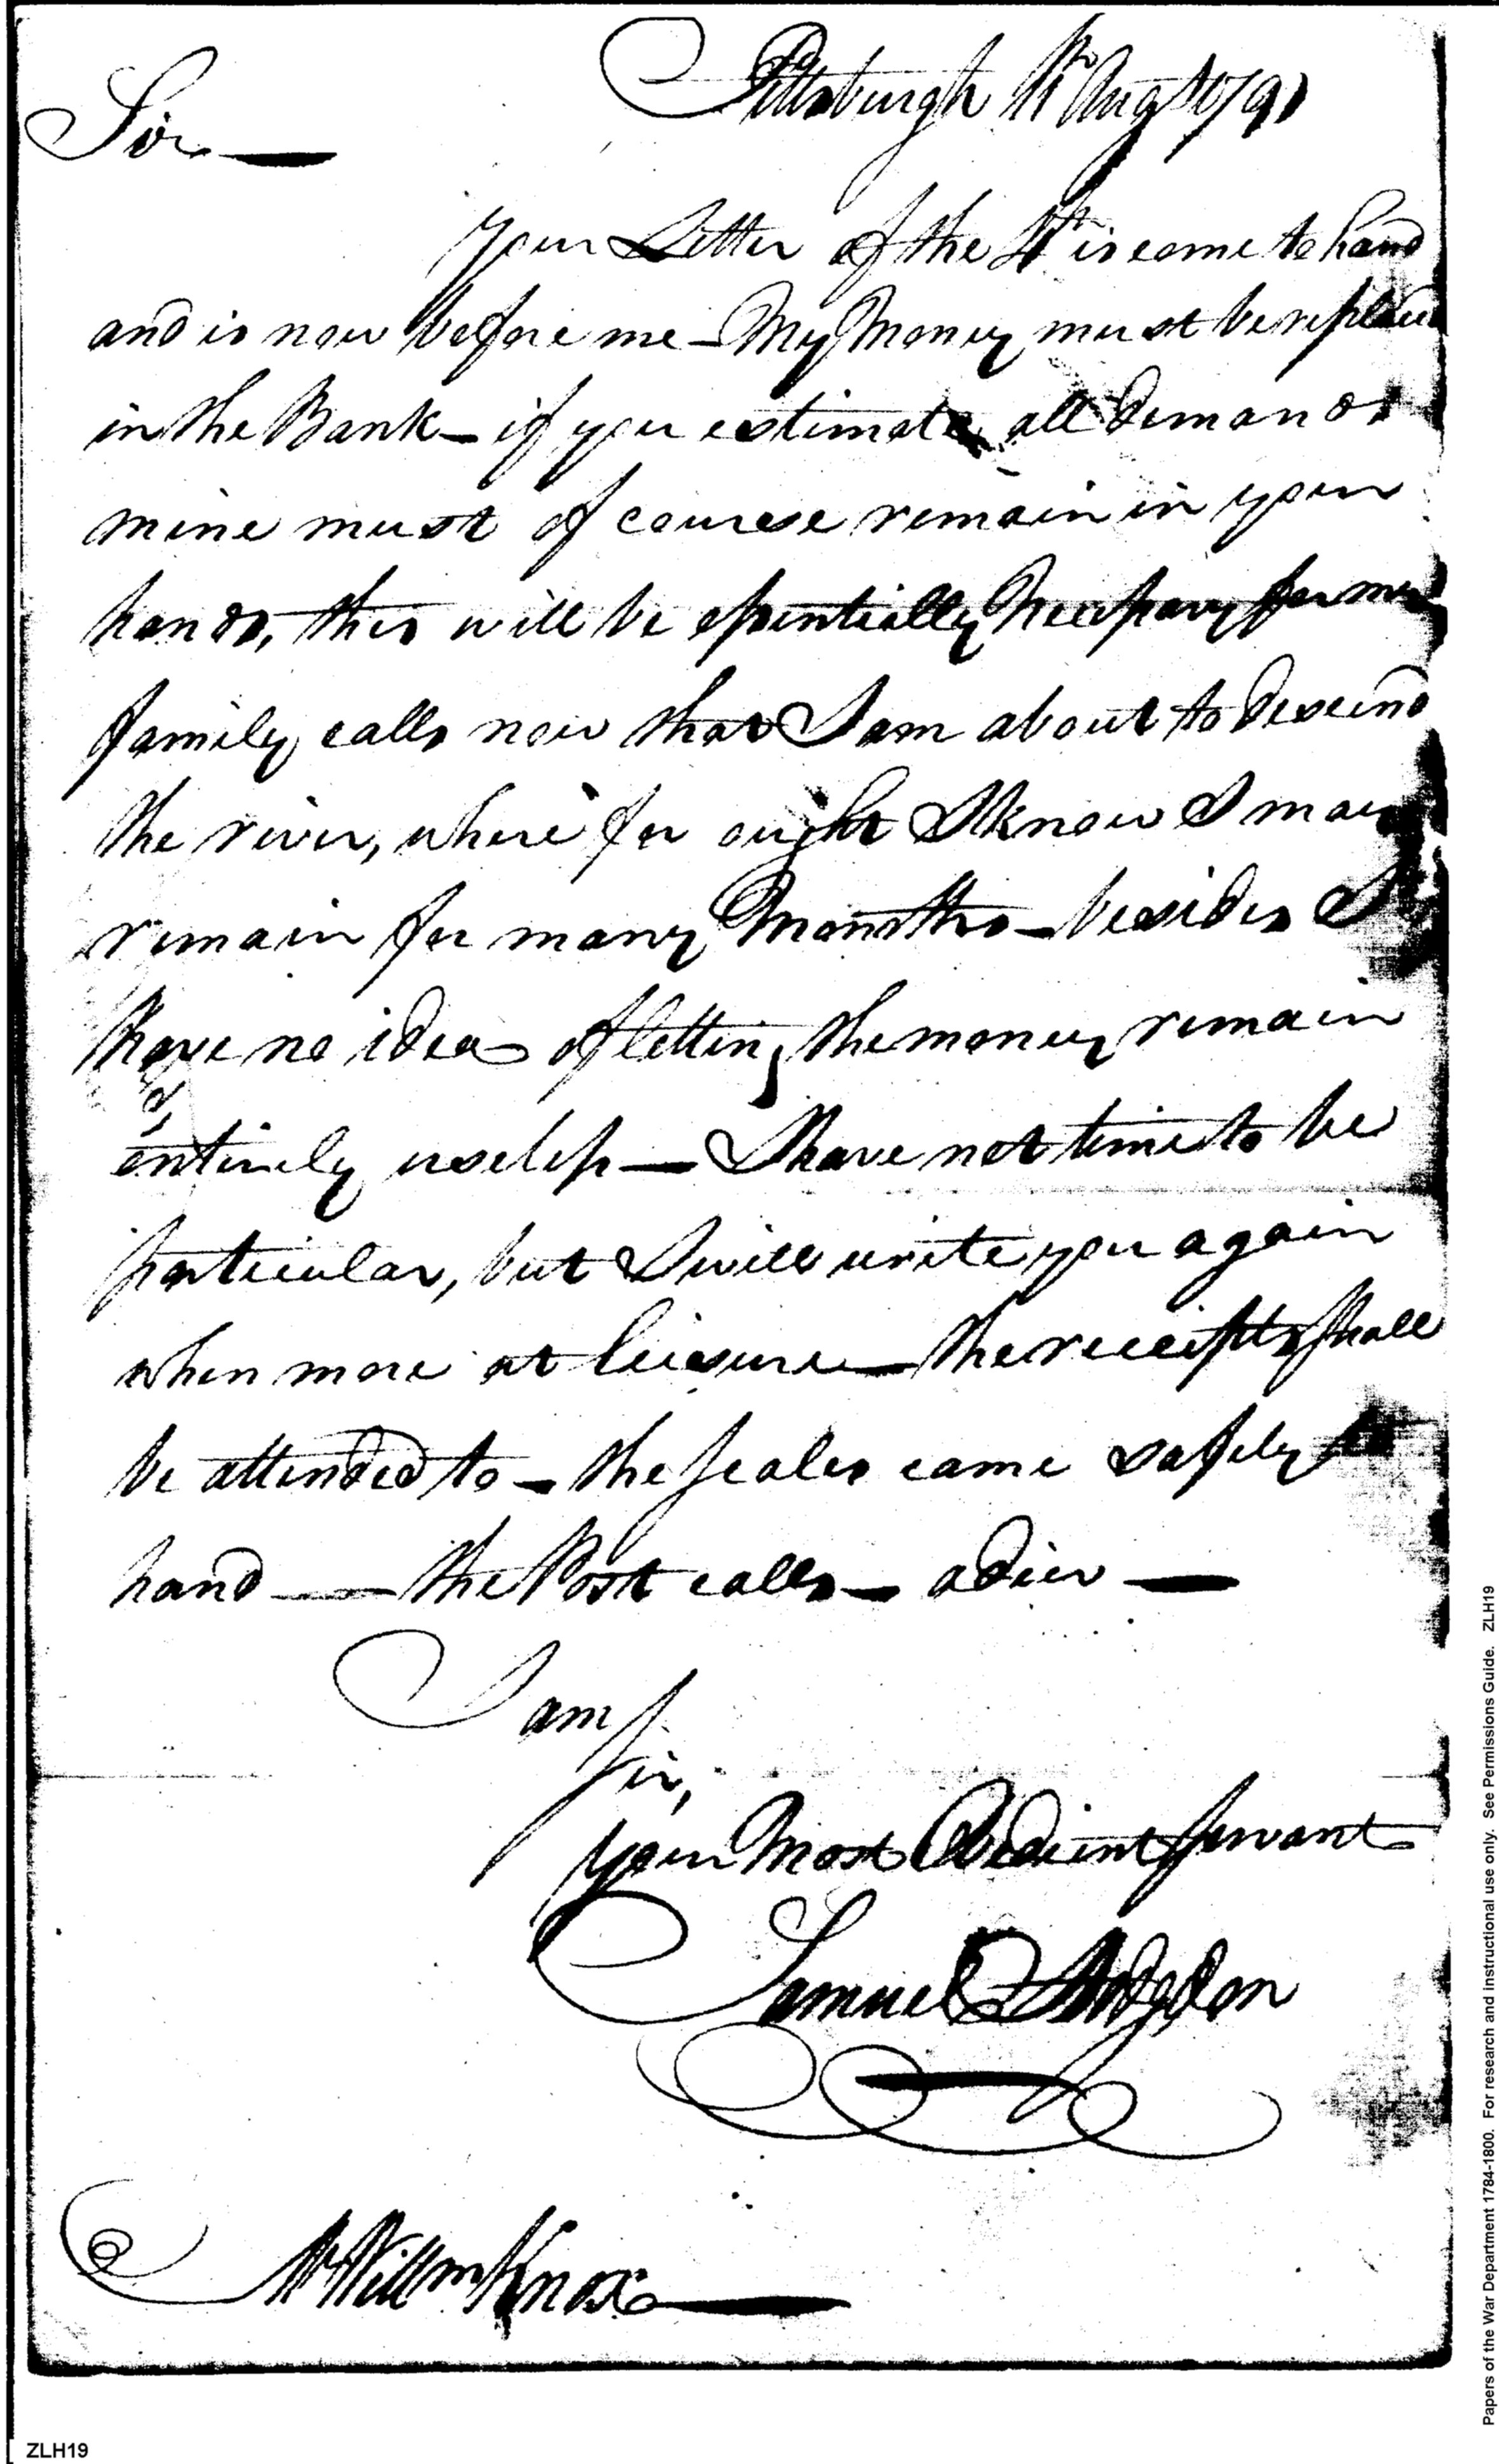 Pittsburgh 11th Augst 1791
Sir —
your Letter of the 4th is come to hand
and is now before me — My Money must be replaced
in the Bank — if you estimate all demands
mine must of course remain in your
hands, this will be essentially Necessary for my
family calls now that I am about to descend
the river, where for ought I know I may
remain for many Months — besides I
have no idea of letting the money remain
entirely useless — I have not time to be
particular, but I will write you again
when more at leisure — the receipts shall
be attended to — the scales came safely to
hand — the Post calls — adieu —
I am
Sir,
your Most Obedient servant
Samuel Hodgdon
Mr Willm Knox —
Papers of the War Department 1784-1800. For research and instructional use only. See Permissions Guide. ZLH19
ZLH19